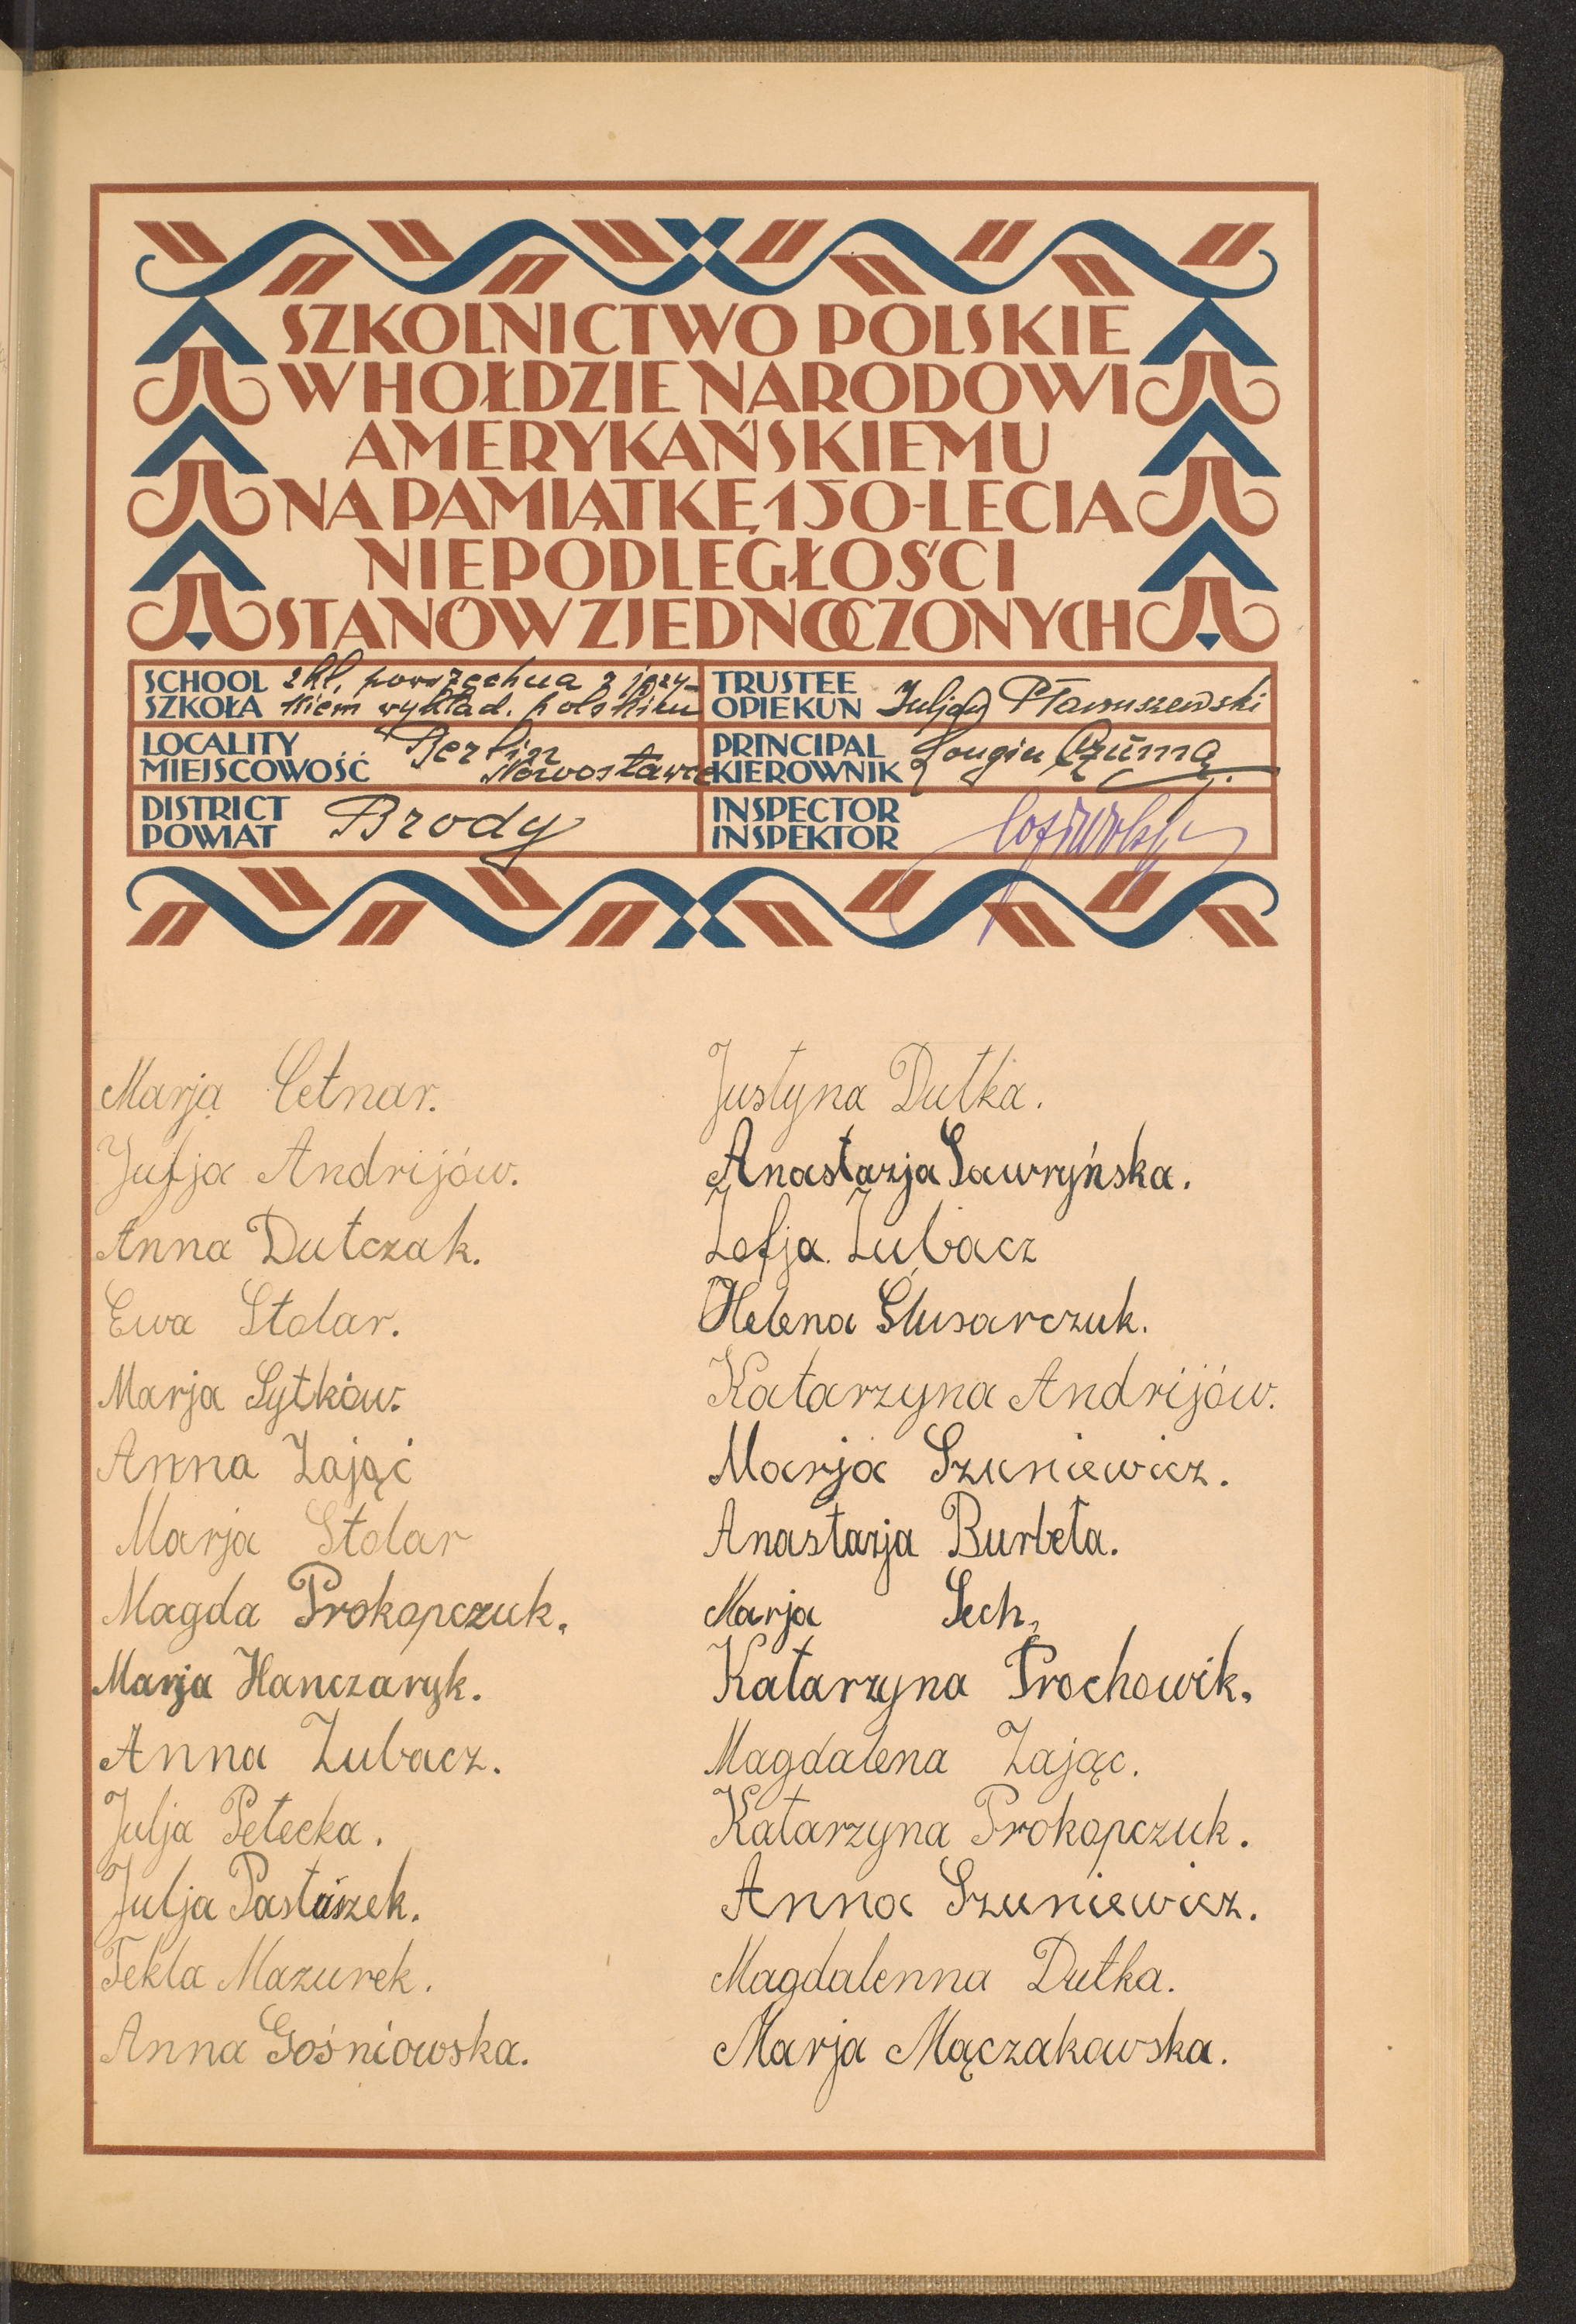 SZKOLNICTWO POLSKIE
W HOŁDZIE NARODOWI
AMERYKAŃSKIEMU
NA PAMIĄTKĘ 150-LECIA
NIEPODLEGŁOŚCI
STANÓW ZJEDNOCZONYCH
SCHOOL
SZKOŁA
2 kl. powszechna z języ-
kiem wykład. polskim
TRUSTEE
OPIEKUN
LOCALITY
MIEJSCOWOŚĆ
Berlin
PRINCIPAL
KIEROWNIK
Longin Czuma
DISTRICT
POWIAT
Brody
INSPECTOR
INSPEKTOR
Marja Cetnar.
Julja Andrijów.
Anna Dutczak.
Ewa Stolar.
Marja Sytków.
Anna Zająć
Marja Stolar
Magda Prokopczuk.
Marja Hanczaryk.
Anna Zubacz.
Julja Petecka.
Julja Pastuszek.
Tekla Mazurek.
Anna Gośniowska.
Justyna Dutka.
Anastazja Sawryńska.
Zofja Zubacz
Helena Ślusarczuk.
Katarzyna Andrijów.
Marja Szuniewicz.
Anastazja Burbeła.
Marja Sech.
Katarzyna Prochowik.
Magdalena Zając.
Katarzyna Prokopczuk.
Anna Szuniewicz.
Magdalenna Dutka.
Marja Mączakowska.